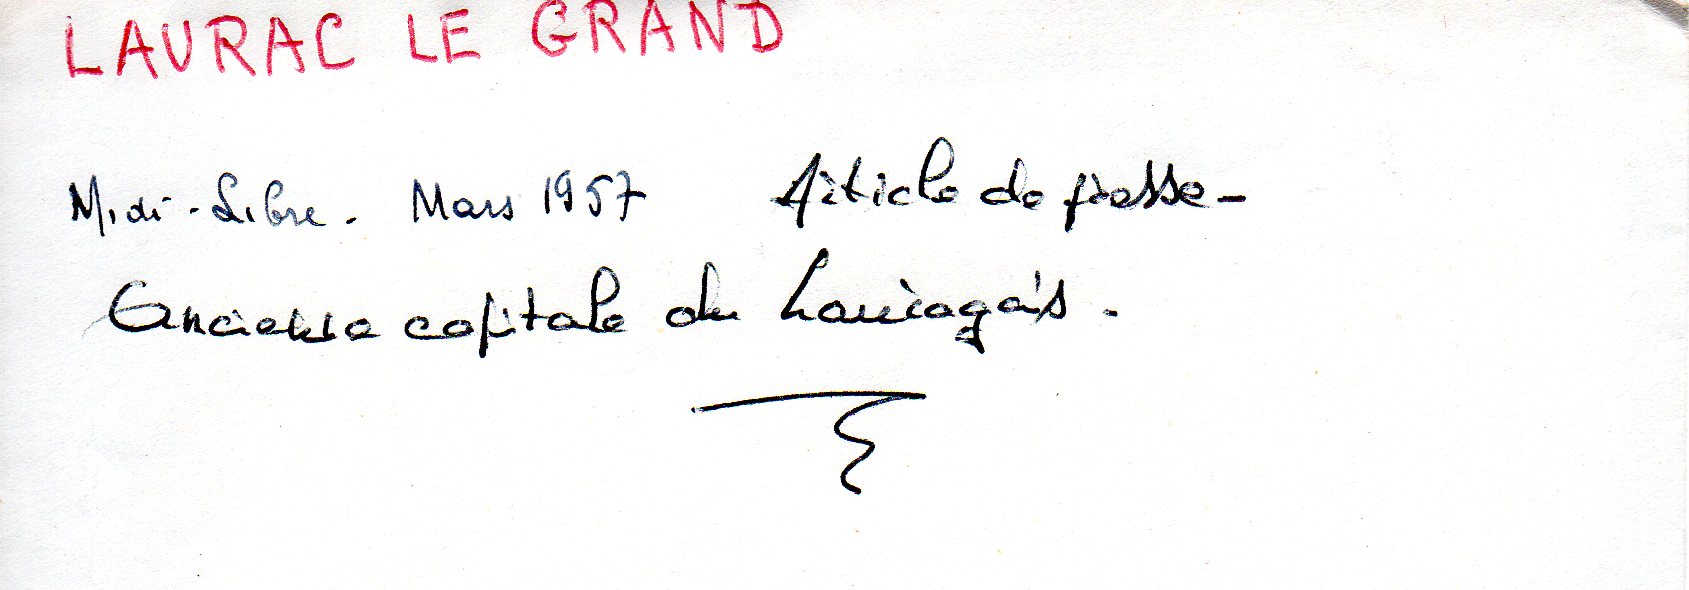 LAURAC LE GRAND
Midi-Libre. Mars 1957 Article de presse-
Ancienne capitale du Lauragais.